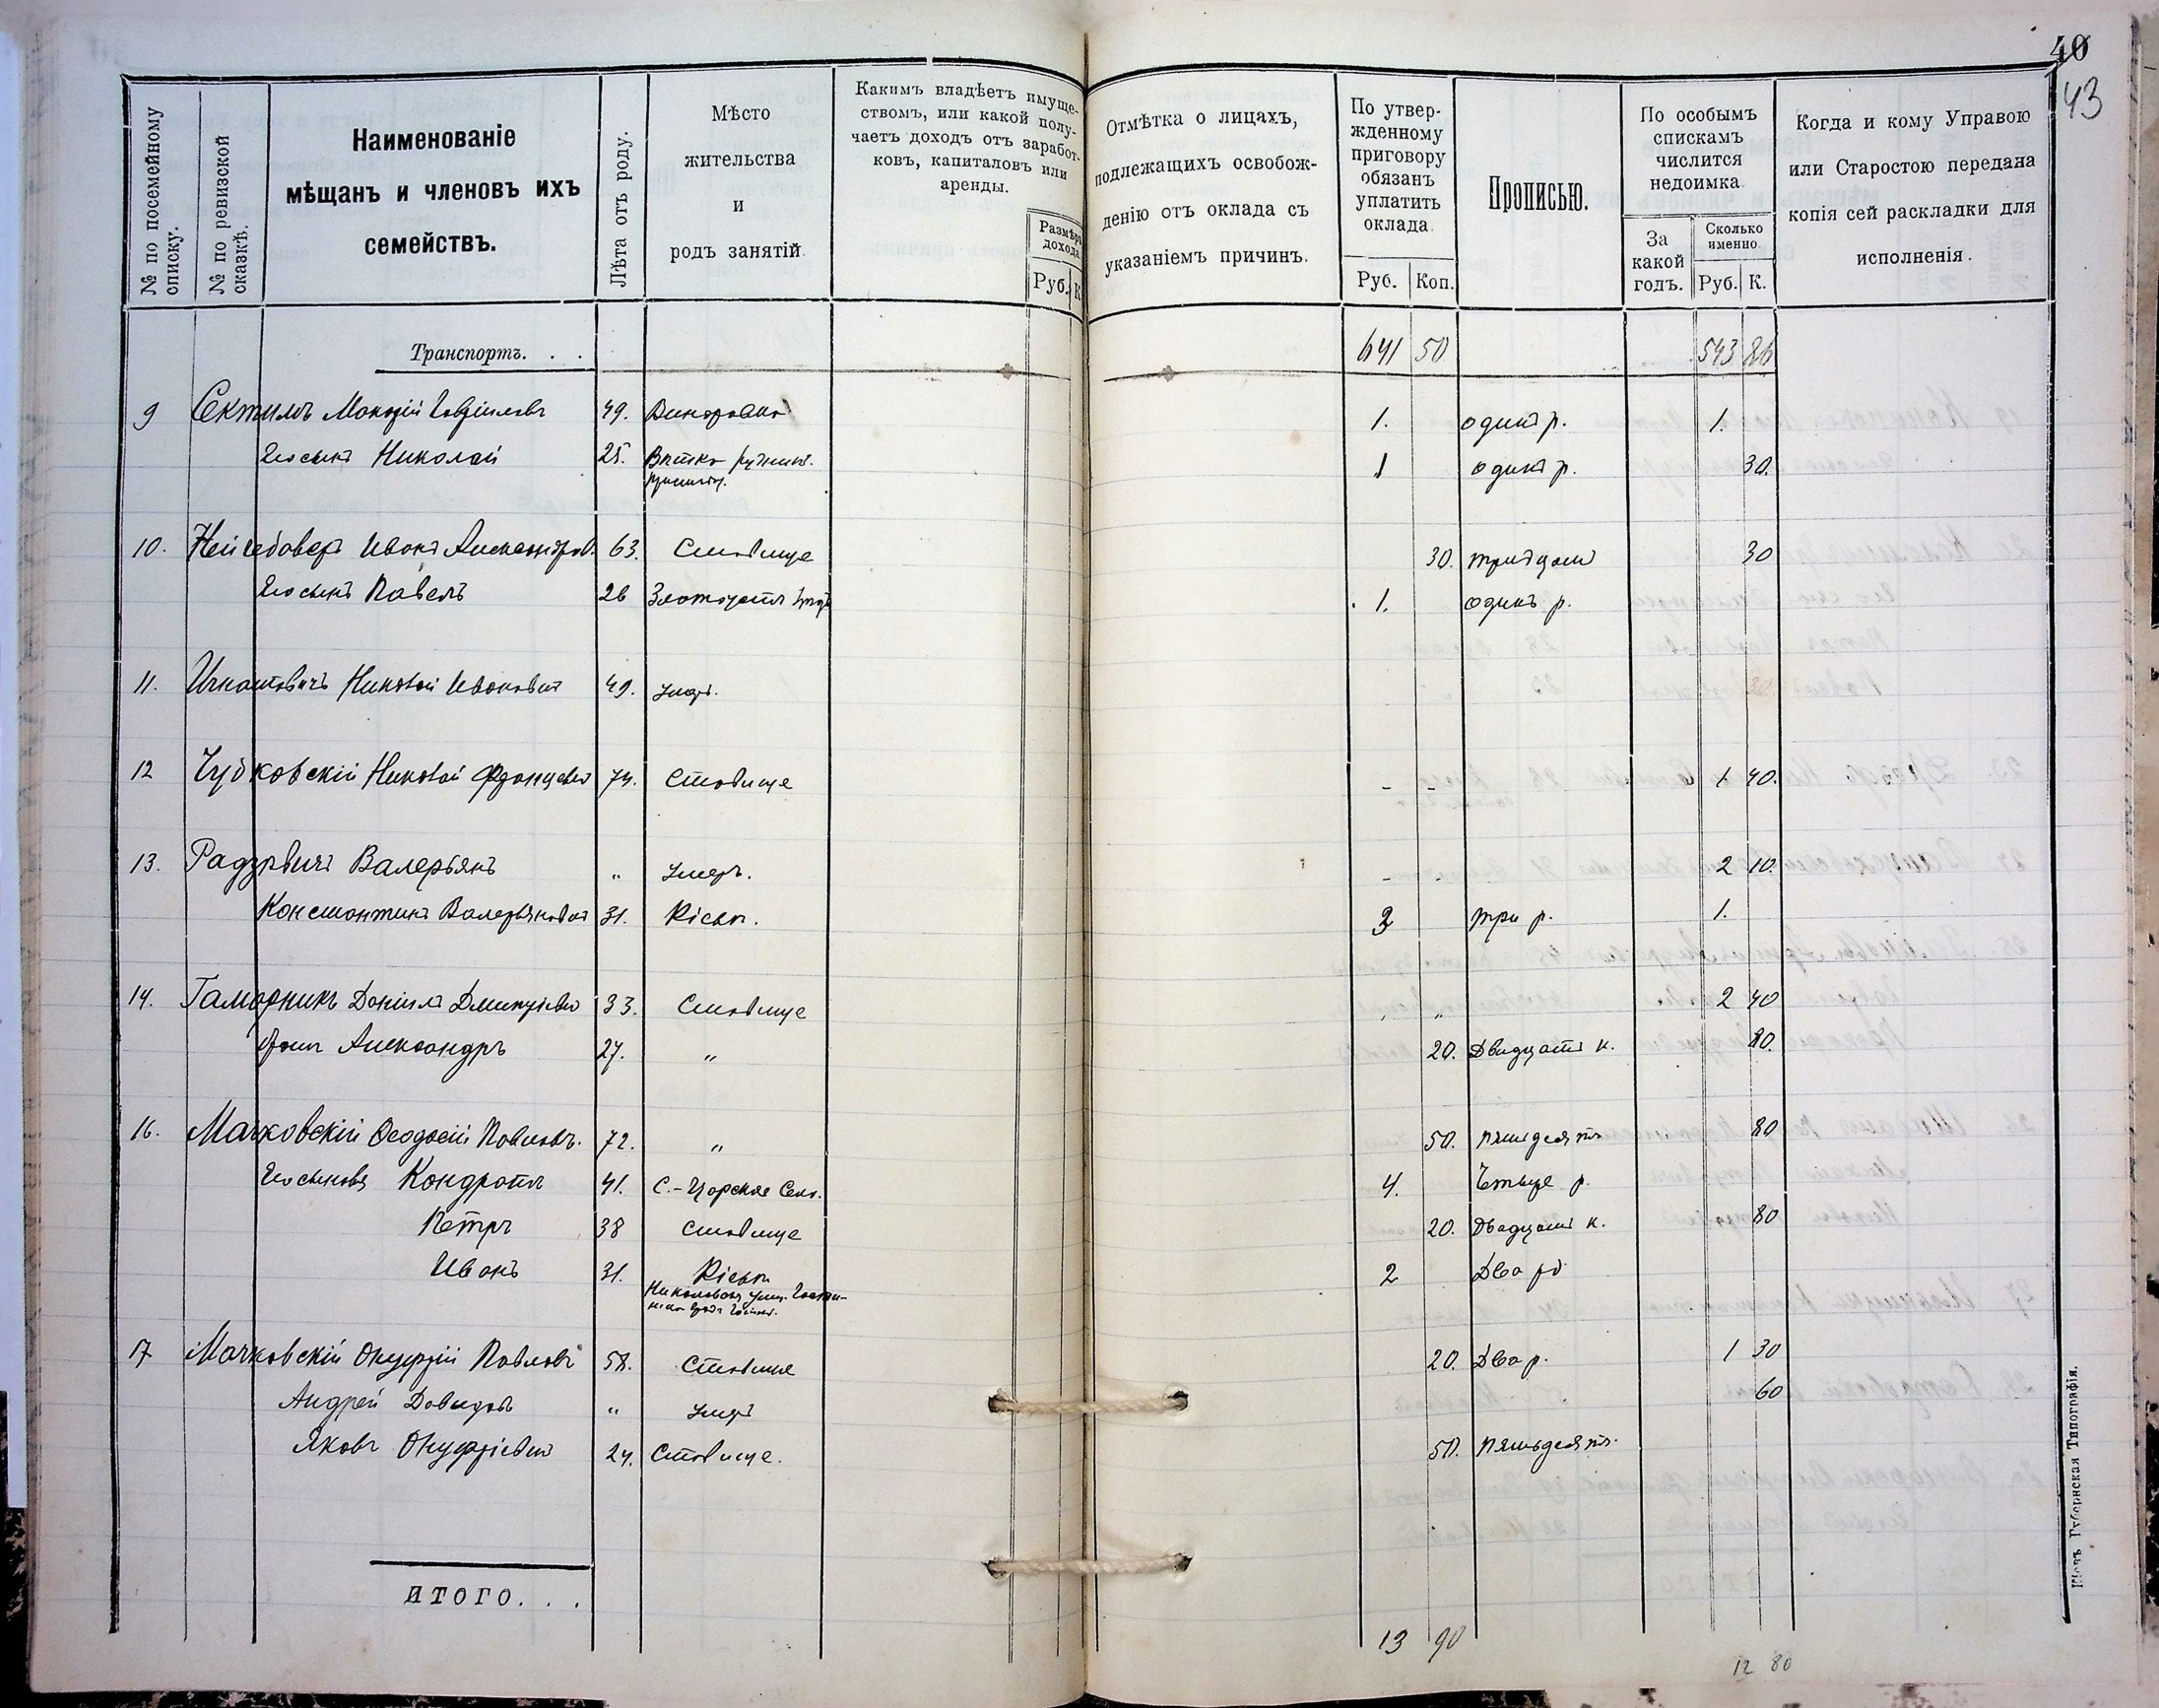 40
43
№ по посемейному списку.
№ по ревизской сказкѣ.
Наименованіе
мѣщанъ и членовъ ихъ
семействъ.
Лѣта отъ роду.
Мѣсто
жительства
и
родъ занятій.
Какимъ владѣетъ имуще-
ствомъ, или какой полу-
чаетъ доходъ отъ заработ-
ковъ, капиталовъ или
аренды.
Размѣръ
дохода
Руб. К
Отмѣтка о лицахъ,
подлежащихъ освобож-
денію отъ оклада съ
указаніемъ причинъ.
По утвер-
жденному
приговору
обязан
уплатить
оклада.
Руб. Коп.
Прописью.
По особымъ
спискамъ
числится
недоимка.
За
какой
годъ.
Сколько
именно.
Руб. К.
Когда и кому Управою
или Старостою передана
копія сей раскладки для
исполненія.
Транспортъ. . . 641 50 543 86
9 49. 1. одинъ р. 1.
Его сынъ Николай 25. 1 одинъ р. 30.
10. Иванъ Александров. 63. Ставище 30. тридцать 30
Его сынъ Павелъ 26 1. одинъ р.
11. Игнатовичъ Николай Ивановичъ 49. умеръ.
12 Чубковскій Николай Францевъ 74. Ставище - - 1 40.
13. Валерьянъ " умеръ. - - 2 10.
Константинъ Валерьяновичъ 31. Кіевъ. 3 три р. 1.
14. Гамарникъ Даніилъ Дмитріевъ 33. Ставище " " 2 40
Александръ 27. " 20. Двадцать к. 80.
16. Мачковскій Ѳеодосій Павловъ. 72. " 50. пятьдесятъ 80
Его сыновья Кондратъ 41. С.-Царское Село. 4. Четыре р.
Петръ 38 Ставище 20. Двадцать к. 80
Иванъ 31. Кіевъ 2 Два р
17 Мачковскій Онуфрій Павловъ 58. Ставище 20. Два р. 1 30
Андрей Давидовъ " умеръ 60
Яковъ Онуфріевичъ 24. Ставище. 50. пятьдесятъ.
ИТОГО. . .
13 90
12 80
Губернская Типографія.